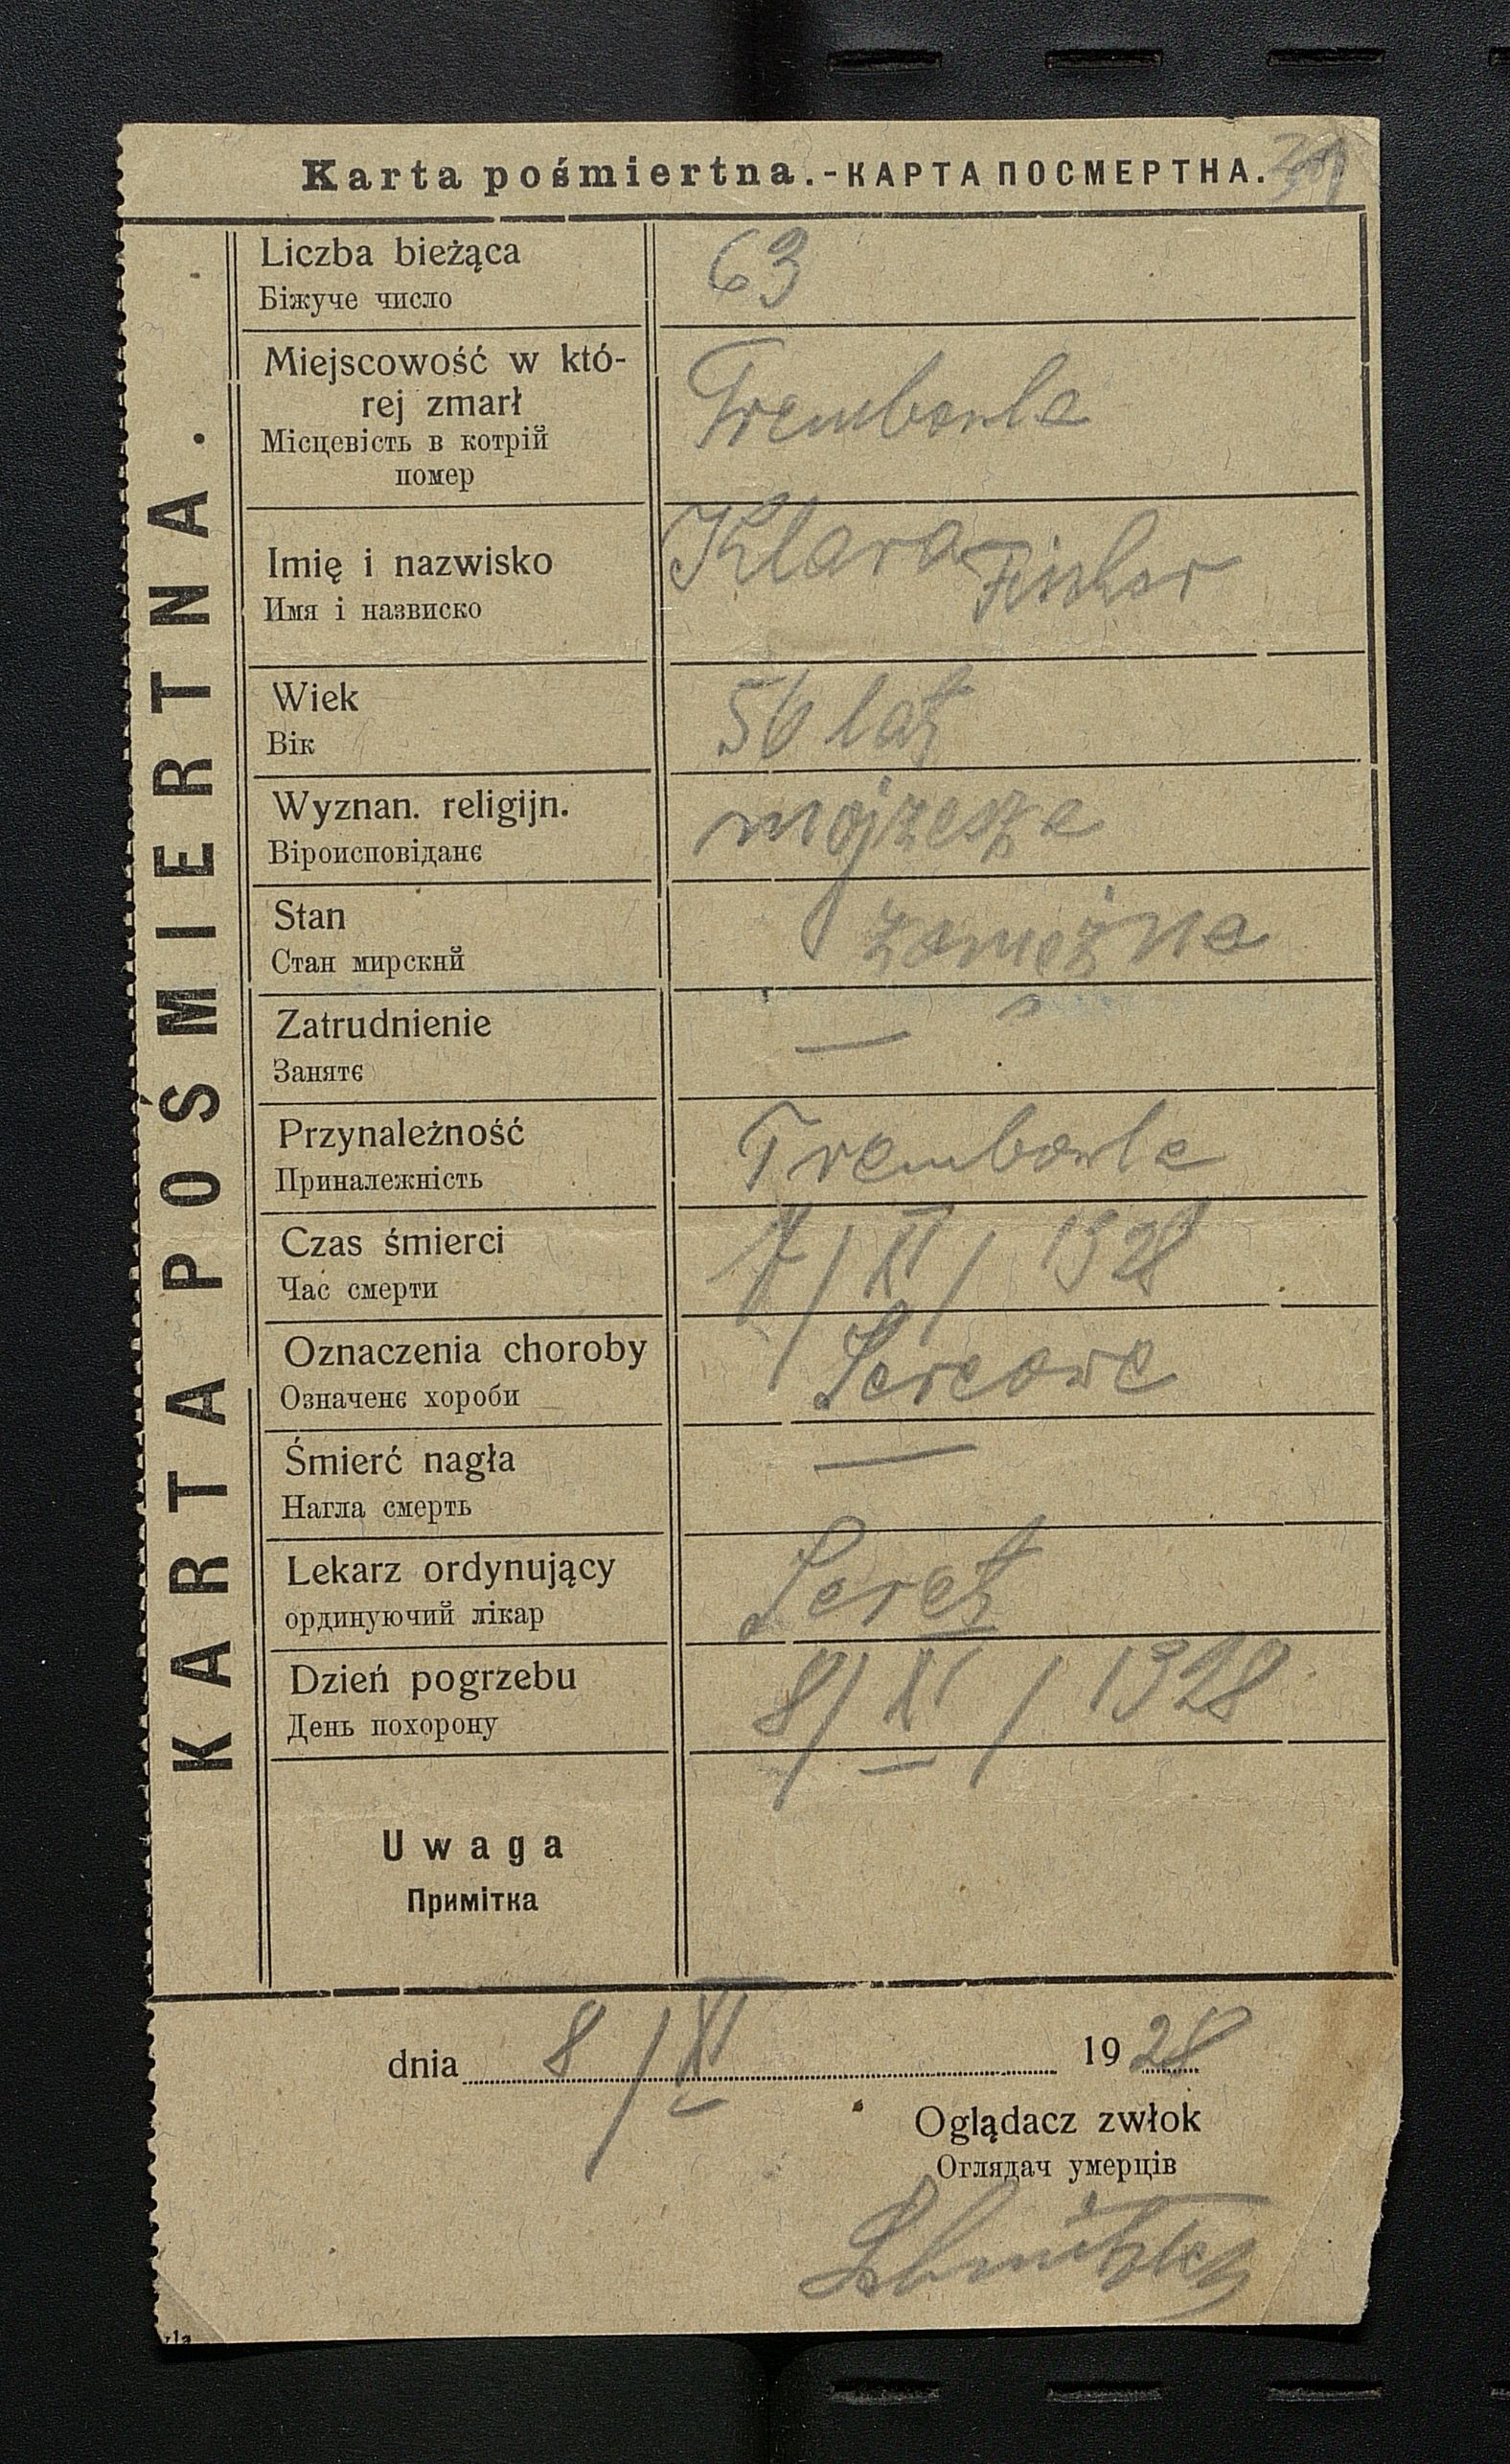 Karta pośmiertna.-КАРТА ПОСМЕРТНА.
KARTA POŚMIERTNA.
Liczba bieżąca 63
Біжуче число
Miejscowość w któ- Trembowla
rej zmarł
Місцевість в котрій
помер
Imię i nazwisko Klara Fischer
Имя і назвиско
Wiek 56 lat
Вік
Wyznan. religijn. mojżesza
Віроисповіданє
Stan zamężna
Стан мирский
Zatrudnienie —
Занятє
Przynależność Trembowla
Приналежність
Czas śmierci 7/XI/1928
Час смерти
Oznaczenia choroby Sercowe
Означенє хороби
Śmierć nagła —
Нагла смерть
Lekarz ordynujący Seret
ординуючий лікар
Dzień pogrzebu 8/XI/1928
День похорону
Uwaga
Примітка
dnia 8/XI 1928
Oglądacz zwłok
Оглядач умерців